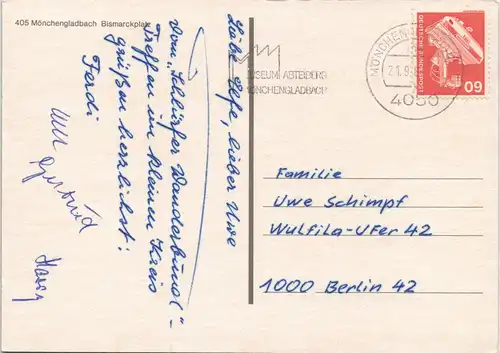 405 Mönchengladbach Bismarckplatz
Liebe Helfe, lieber Uwe
Vom „Schlürfer Wanderbund“-
Treffen im kleinen Kreis
grüßen herzlichst:
Ferdi
Gertrud
MUSEUM ABTEIBERG
MÖNCHENGLADBACH
MÖNCHEN
21.9.
4050
DEUTSCHE BUNDESPOST
60
Familie
Uwe Schimpf
Wulfila-Ufer 42
1000 Berlin 42